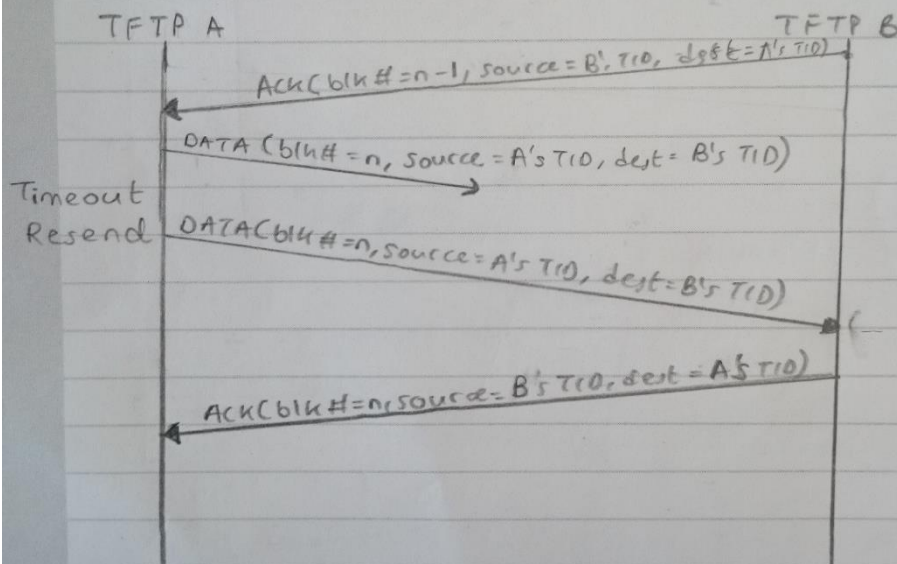 TFTP A
TFTP B
Ack(blk#=n-1, source=B's TID, dest=A's TID)
DATA (blk#=n, source=A's TID, dest=B's TID)
Timeout
Resend
DATA(blk#=n, source=A's TID, dest=B's TID)
ACK(blk#=n, source=B's TID, dest=A's TID)